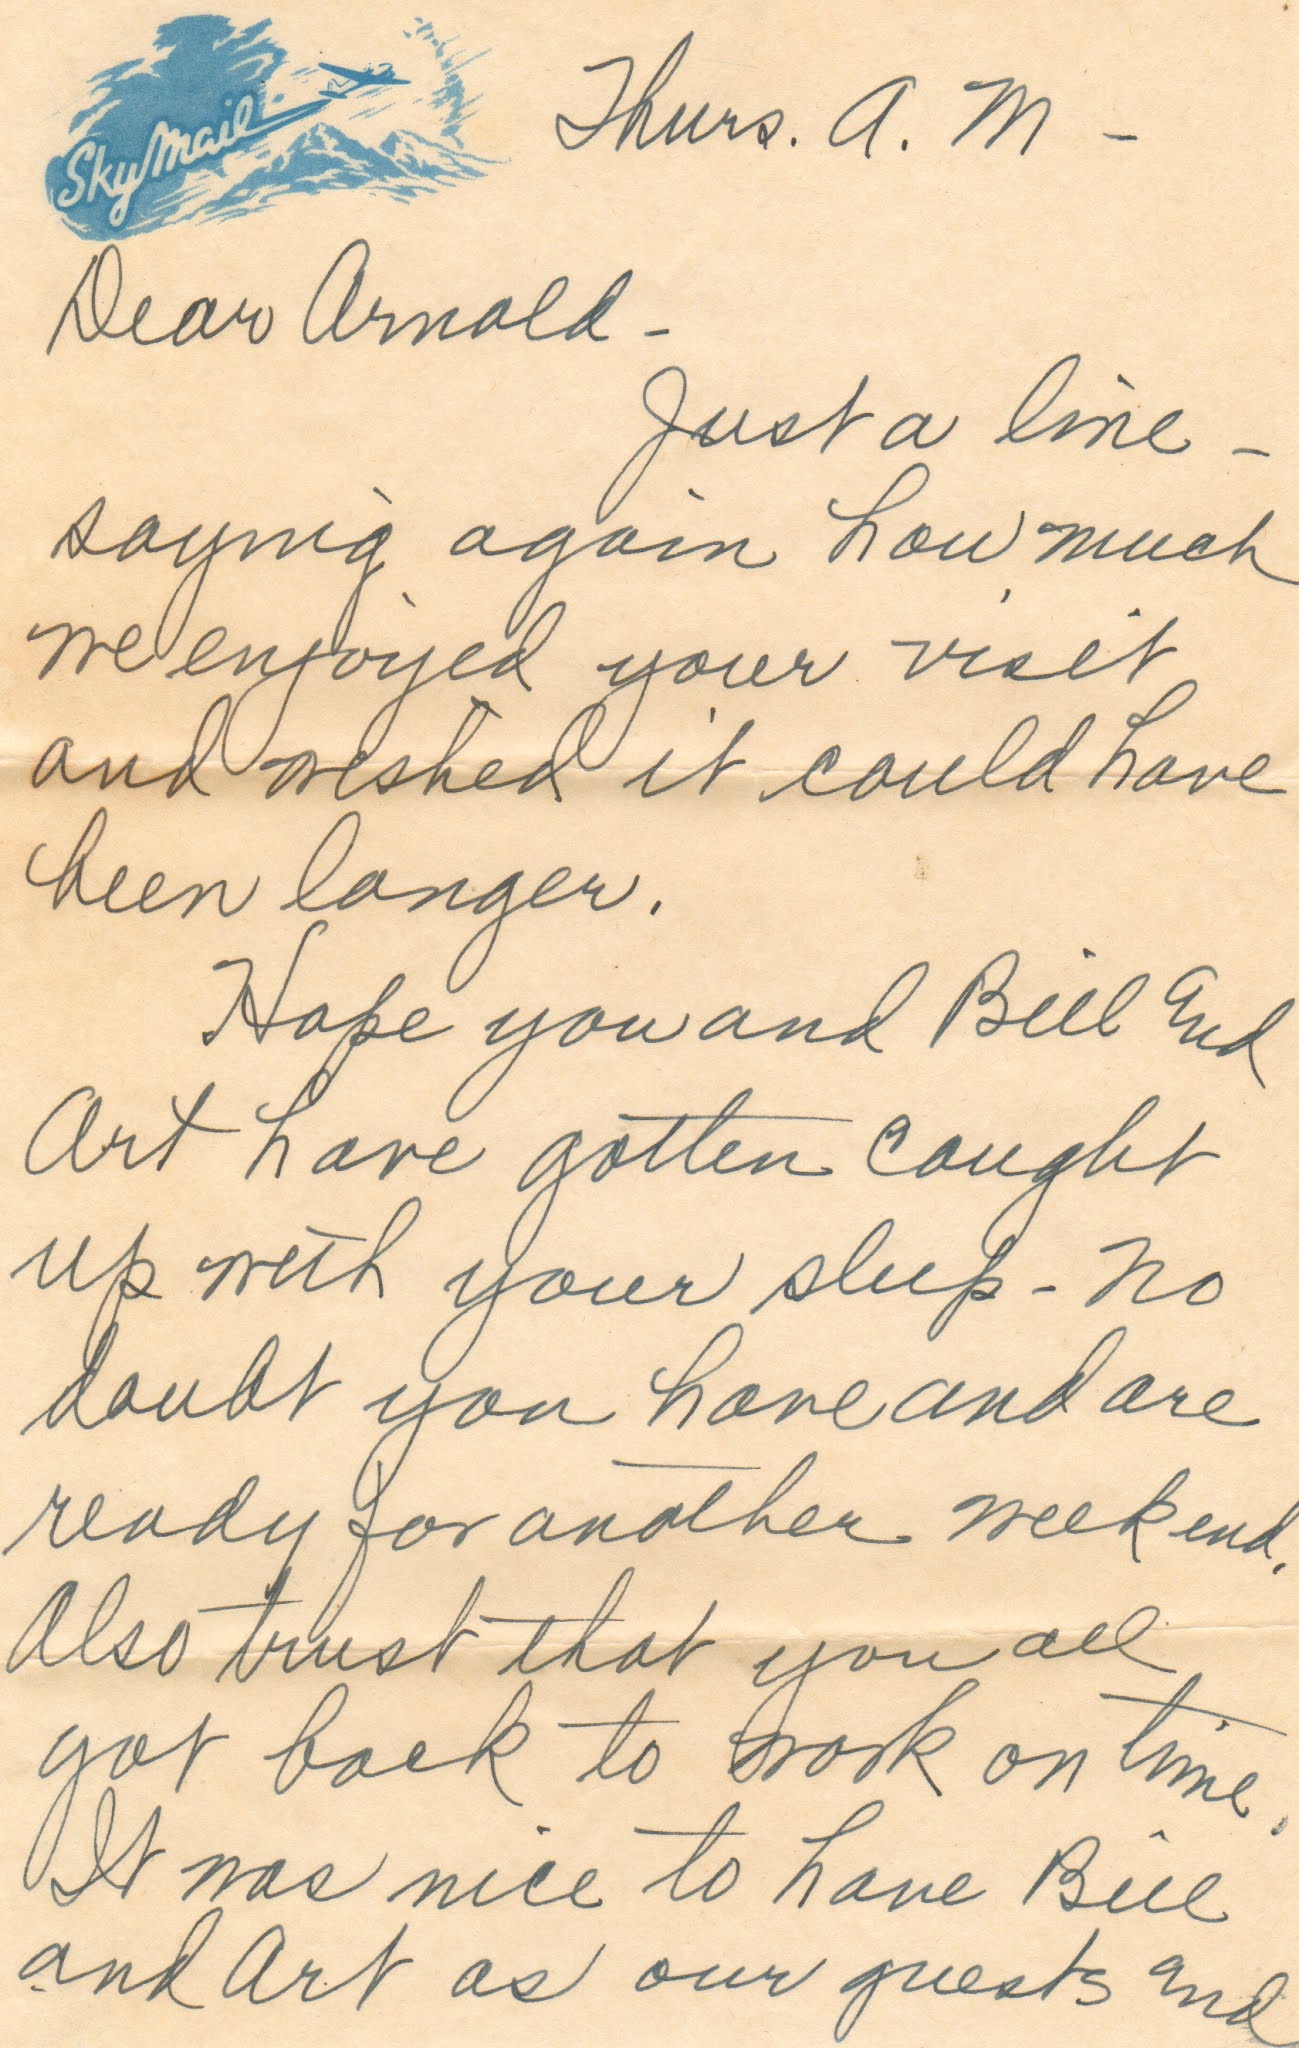 Sky Mail
Thurs. A. M -
Dear Arnold -
Just a line -
saying again how much
we enjoyed your visit
and wished it could have
been longer.
Hope you and Bill and
Art have gotten caught
up with your sleep - no
doubt you have and are
ready for another week end.
Also trust that you all
got back to work on time.
It was nice to have Bill
and Art as our guests and